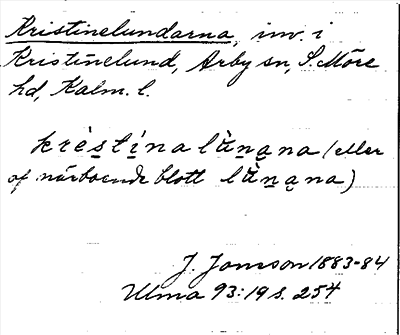 Kristinelundarna, inv. i
Kristinelund, Arby sn, S. Möre
hd, Kalm. l.
krès̲tín̲a lǜn̲a̲na (eller
af närboende blott lǜn̲a̲na)
J. Jonsson 1883-84
Ulma 93:19 s. 254